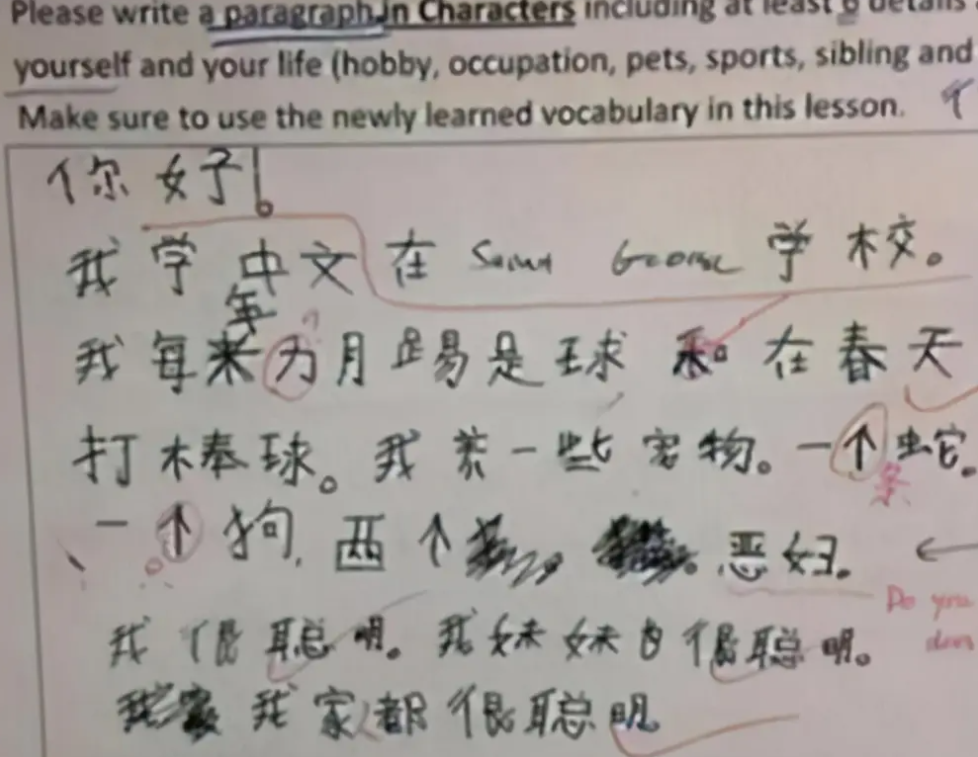 Please write a paragraph in Characters including at least 6 details
yourself and your life (hobby, occupation, pets, sports, sibling and
Make sure to use the newly learned vocabulary in this lesson.
你好。
我学中文在 George 学校。
年
我每 月踢是球 在春天
打棒球。我养一些宠物。一个蛇。
条
一个狗, 两个 恶妇。
Do you
我很聪明。我妹妹也很聪明。
我家都很聪明